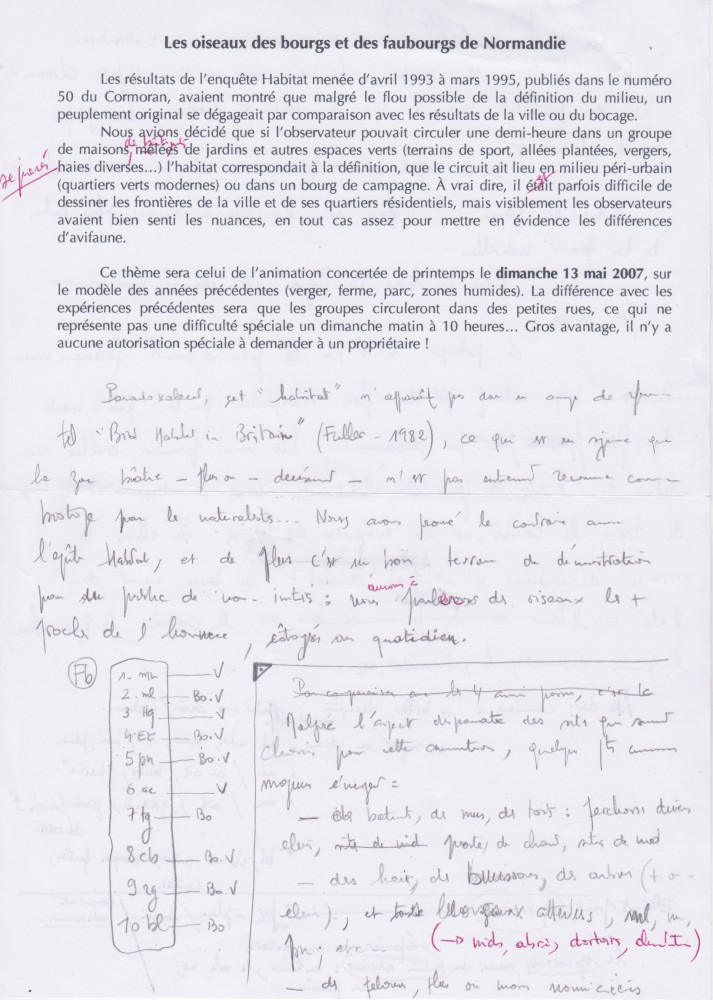 Les oiseaux des bourgs et des faubourgs de Normandie
Les résultats de l'enquête Habitat menée d'avril 1993 à mars 1995, publiés dans le numéro
50 du Cormoran, avaient montré que malgré le flou possible de la définition du milieu, un
peuplement original se dégageait par comparaison avec les résultats de la ville ou du bocage.
Nous avions décidé que si l'observateur pouvait circuler une demi-heure dans un groupe
de maisons, mêlées de jardins et autres espaces verts (terrains de sport, allées plantées, vergers,
haies diverses...) l'habitat correspondait à la définition, que le circuit ait lieu en milieu péri-urbain
(quartiers verts modernes) ou dans un bourg de campagne. À vrai dire, il était parfois difficile de
dessiner les frontières de la ville et de ses quartiers résidentiels, mais visiblement les observateurs
avaient bien senti les nuances, en tout cas assez pour mettre en évidence les différences
d'avifaune.
Ce thème sera celui de l'animation concertée de printemps le dimanche 13 mai 2007, sur
le modèle des années précédentes (verger, ferme, parc, zones humides). La différence avec les
expériences précédentes sera que les groupes circuleront dans des petites rues, ce qui ne
représente pas une difficulté spéciale un dimanche matin à 10 heures... Gros avantage, il n'y a
aucune autorisation spéciale à demander à un propriétaire !
Paradoxalement, cet "habitat" n'apparaît pas dans un ouvrage de
tel "Bird Habitats in Britain" (Fuller - 1982), ce qui est un signe que
la zone bâtie - plus ou - - n'est pas reconnue comme
biotope par les naturalistes... Nous avons prouvé le contraire avec
l'enquête Habitat, et de plus c'est un bon terrain de démonstration
pour public de non-initiés : nous parlerons des oiseaux les +
proches de l'homme, côtoyés au quotidien.
Fb
1. mn V
2. ml Bo.V
3 Hg V
4. Et Bo.V
5 pn Bo.V
6 ac V
7 tg Bo
8 cb Bo.V
9 vg Bo.V
10 bl Bo
Malgré l'aspect disparate des sites qui sont
choisis pour cette animation, quelques pts communs
majeurs émergent =
- des bâtiments, des murs, des toits : perchoirs divers
élevés, postes de chant, sites de nid
- des haies, de buissons, des arbres (+ o -
élevés), et
(→ nids, abris, dortoirs, )
- des pelouses, plus ou moins